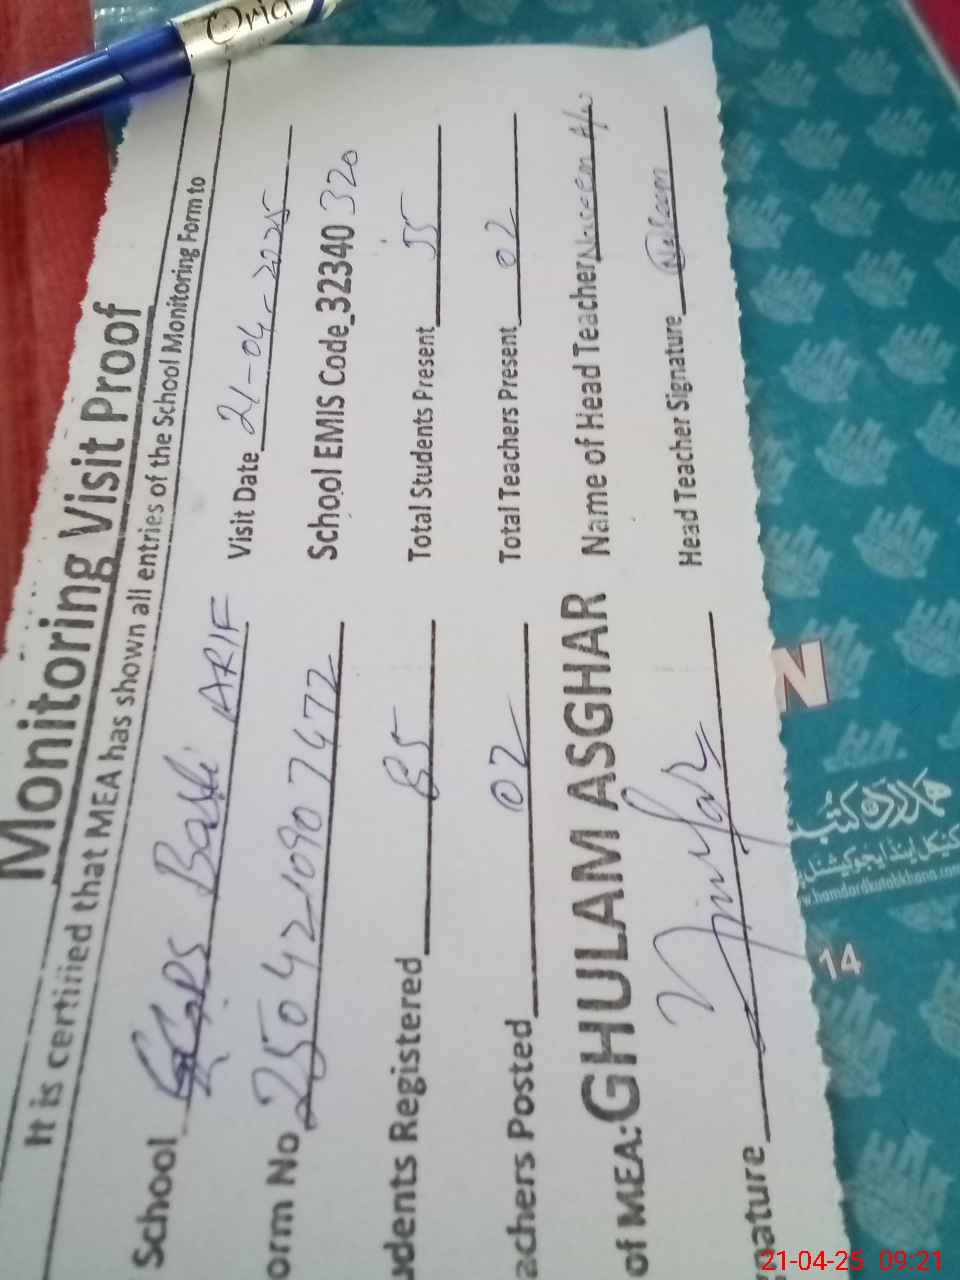 Oria
Monitoring Visit Proof
It is certified that MEA has shown all entries of the School Monitoring Form to
School GGPS Basti ARIF Visit Date 21-04-2025
orm No 2504210907472 School EMIS Code 32340 320
udents Registered 85 Total Students Present 55
achers Posted 02 Total Teachers Present 02
of MEA: GHULAM ASGHAR Name of Head Teacher Naeem A/w
nature Head Teacher Signature Naeem
N
ہمدرد کتب
www.hamdardkutabkhana.com
14
21-04-25 09:21